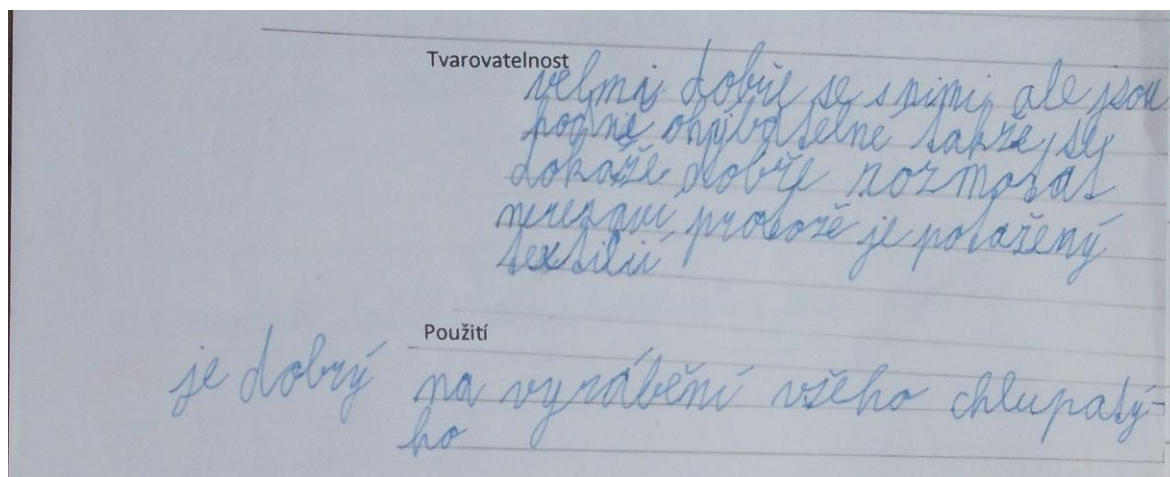 Tvarovatelnost
velmi dobře se s nimi, ale jsou
hodně ohýbatelné takže se
dokáže dobře rozmotat
nerezaví, protože je potažený
textilií
Použití
je dobrý na vyrábění všeho chlupatý-
ho